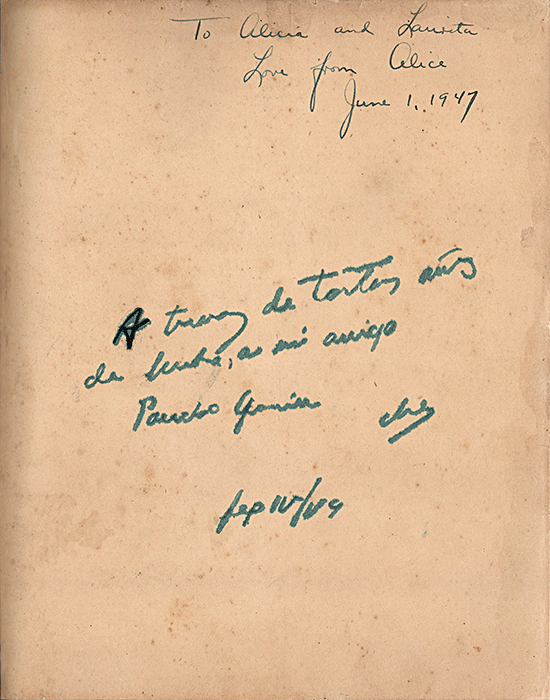 To Alicia and Laureta
Love from Alice
June 1, 1947
A traves de tantos años
de lucha, a mi amigo
Pancho
che